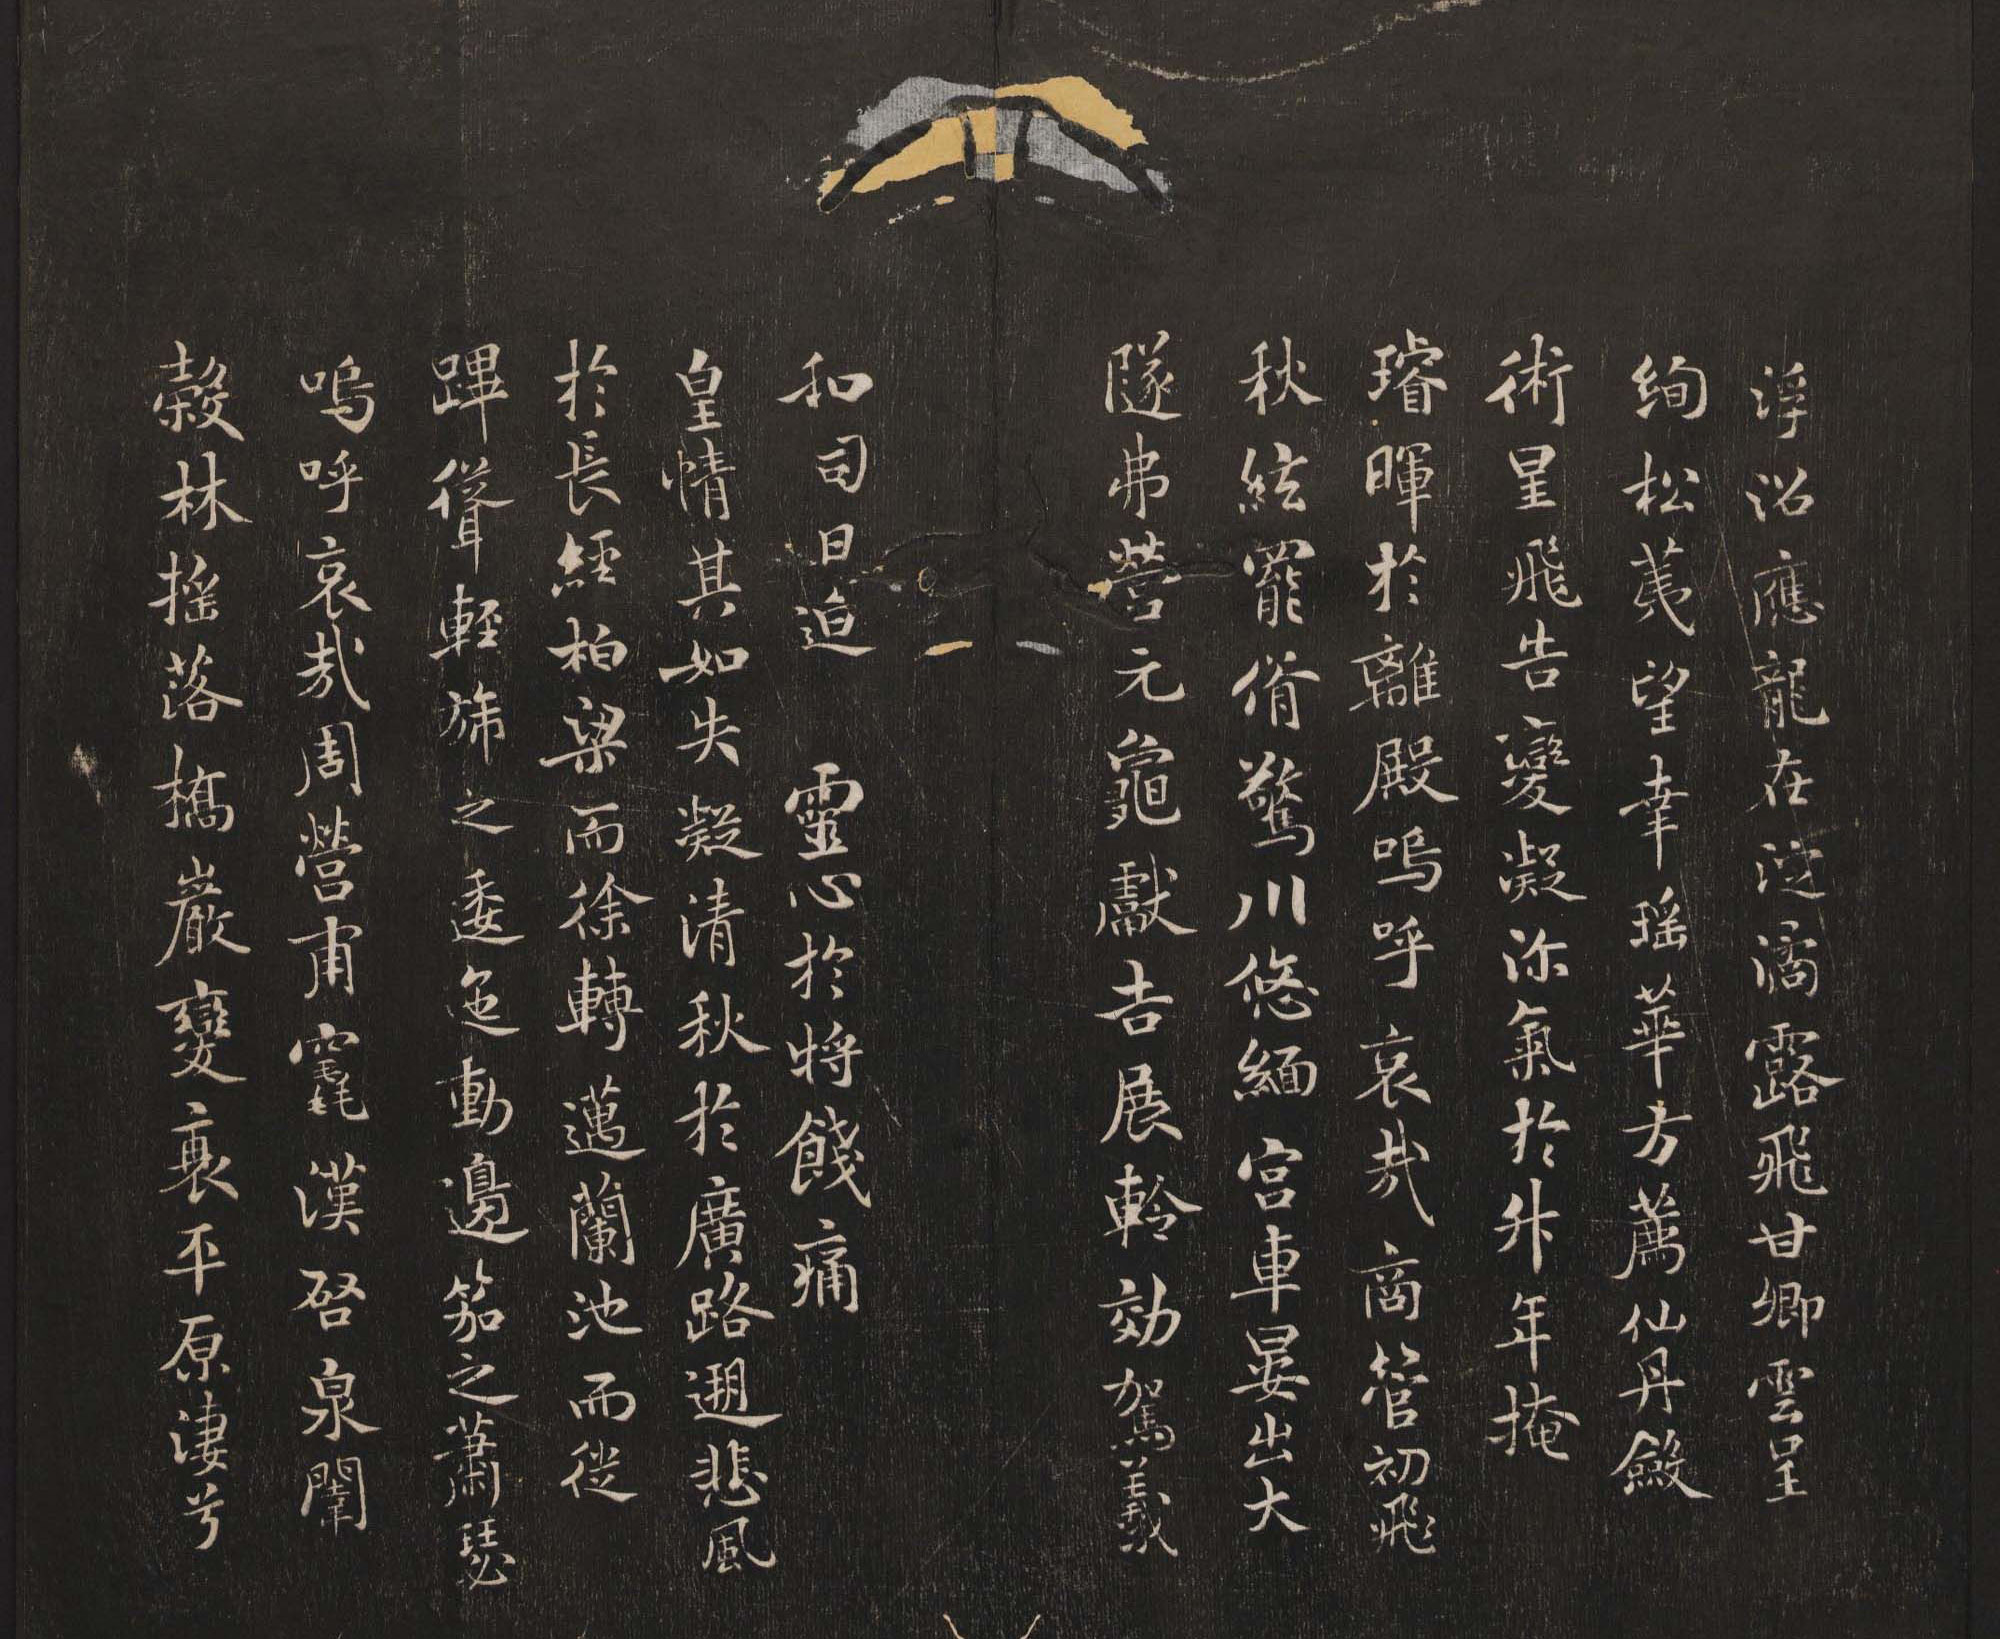 浮洛應龍在淀潏露飛甘卿雲呈
絢松荑望幸瑶華方薦仙丹斂
術星飛告變凝沴氣於升年掩
璿暉於離殿嗚呼哀哉商管初飛
秋絃罷脩驚川悠緬宮車晏出大
隧弗營元龜獻吉展軨効駕義
和司日迫　靈心於將餞痛
皇情其如失凝清秋於廣路遡悲風
於長經柏梁而徐轉邁蘭池而從
蹕聳輕旆之委迤動邊笳之蕭瑟
嗚呼哀哉周營甫竁漢啓泉闈
穀林摇落橋巖變衰平原淒兮